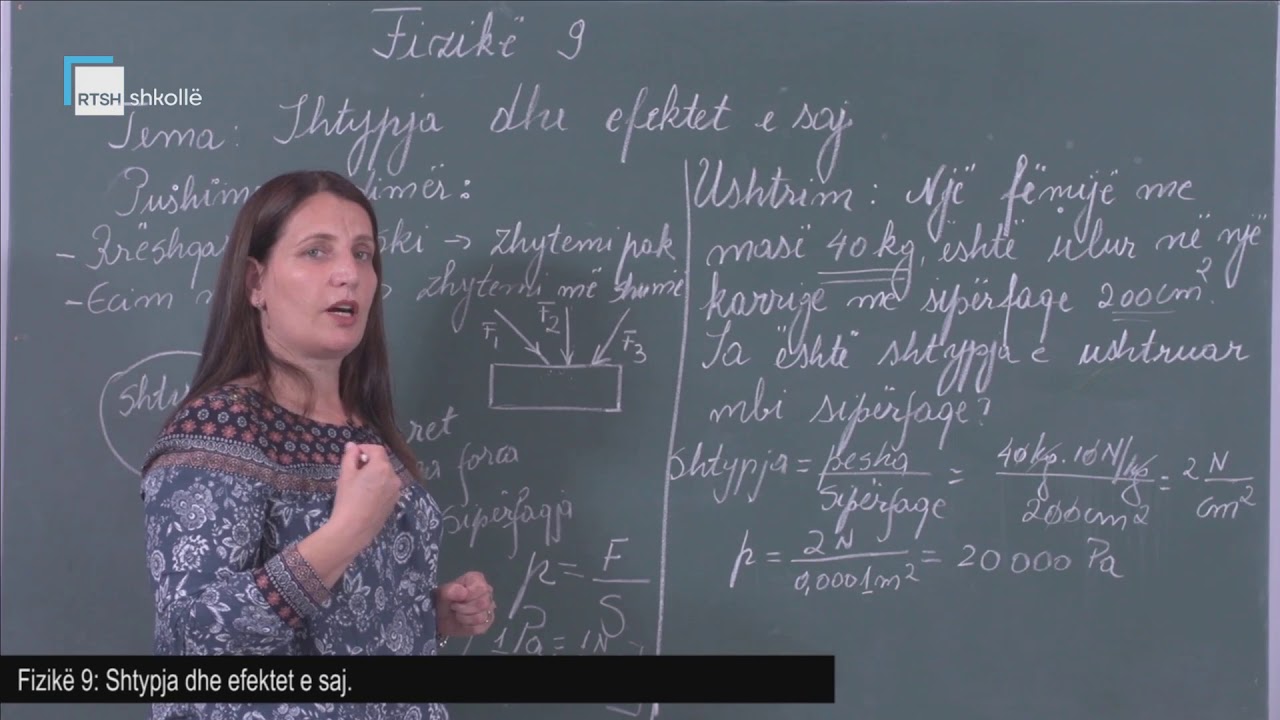 RTSH shkollë
Fizikë 9
Tema: Shtypja dhe efektet e saj
- → zhytemi pak
- Ecim zhytemi më shumë
F₁ F₂ F₃
forca
sipërfaqja
p = F / S
1Pa = 1N
Ushtrim: Një fëmijë me
masë 40 kg, është ulur në një
karrige me sipërfaqe 200cm².
Sa është shtypja e ushtruar
mbi sipërfaqe?
shtypja = pesha / sipërfaqe = 40kg · 10N/kg / 200cm² = 2 N / cm²
p = 2N / 0,0001m² = 20 000 Pa
Fizikë 9: Shtypja dhe efektet e saj.